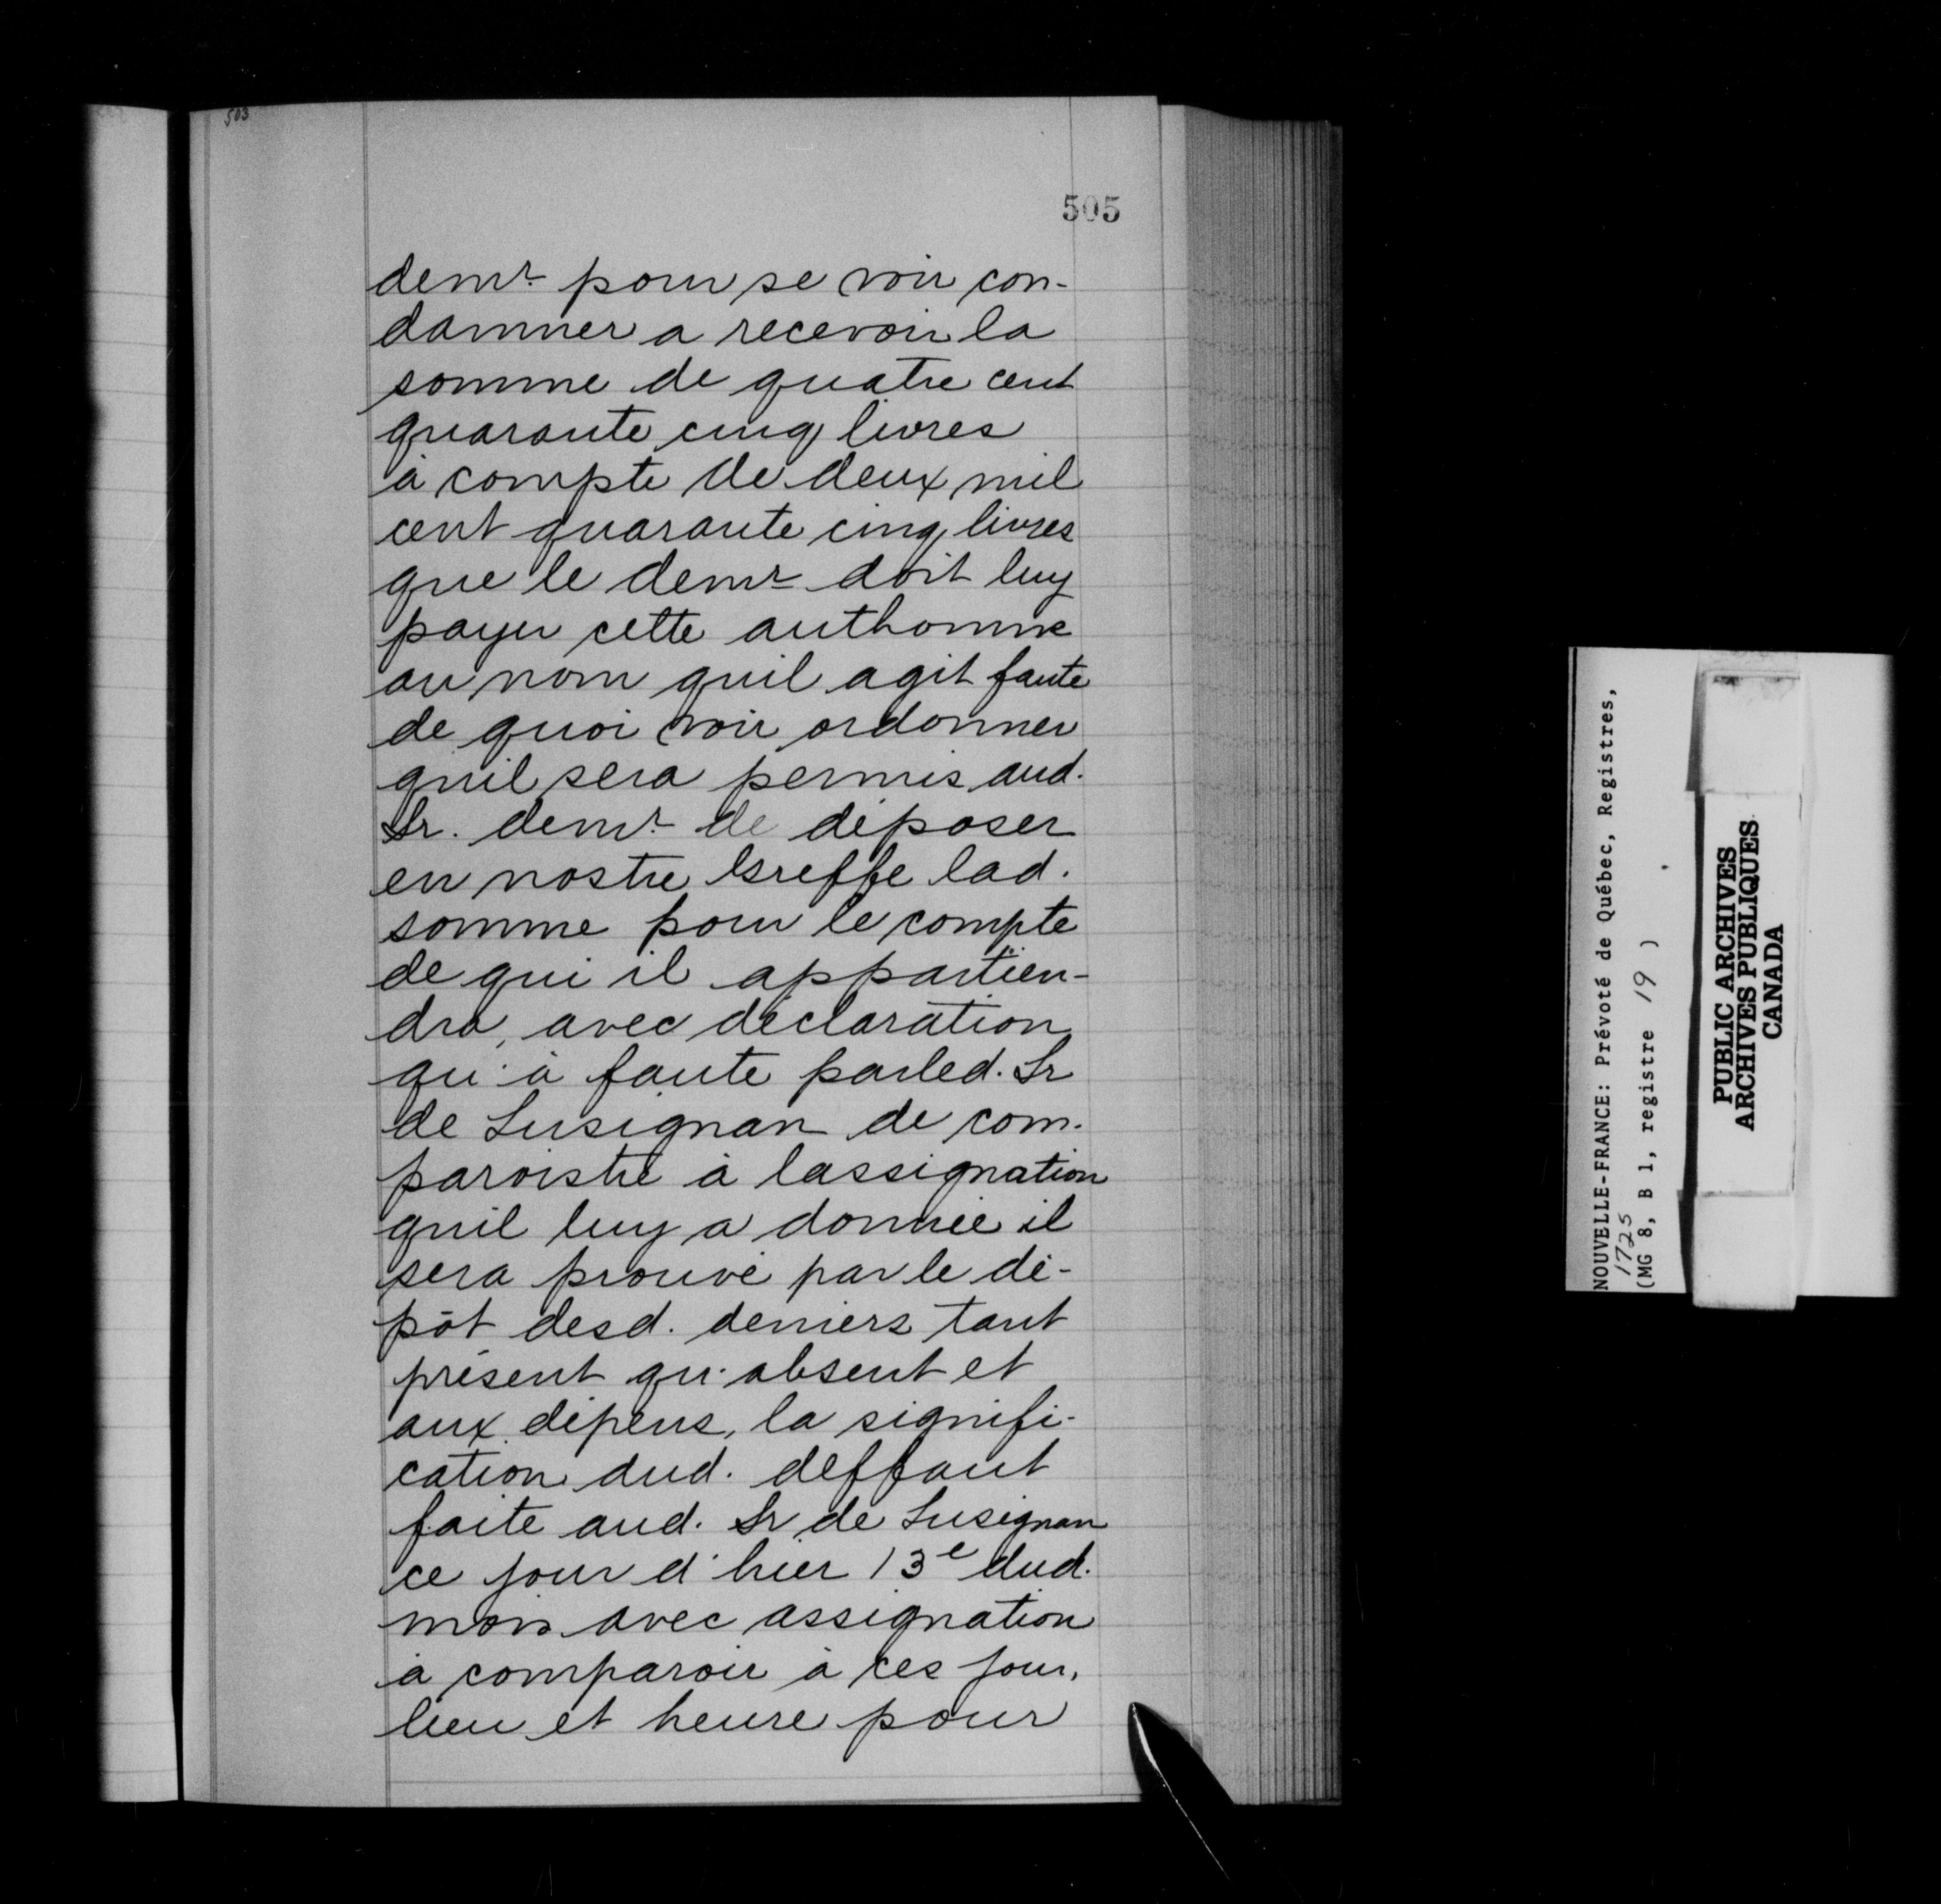 503
505
demr. pour se voir con-
damner a recevoir la
somme de quatre cent
quarante cinq livres
à compte de deux mil
cent quarante cinq livres
que le demr doit luy
payer cette authomne
au nom quil agit faute
de quoi voir ordonner
quil sera permis aud.
Sr. demr. de déposer
en nostre Greffe lad.
somme pour le compte
de qui il appartien-
dra, avec déclaration
qu'à faute parled. Sr
de Lusignan de com-
paroistre à lassignation
quil luy a donnée il
sera prouvé par le dé-
pôt desd. deniers tant
présent qu'absent et
aux dépens, la signifi-
cation dud. deffaut
faite aud. Sr de Lusignan
ce jour d'hier 13e dud.
mois avec assignation
a comparoir à ces jour,
lieu et heure pour
NOUVELLE-FRANCE: Prévoté de Québec, Registres,
1725
(MG 8, B 1, registre 19 )
PUBLIC ARCHIVES
ARCHIVES PUBLIQUES
CANADA